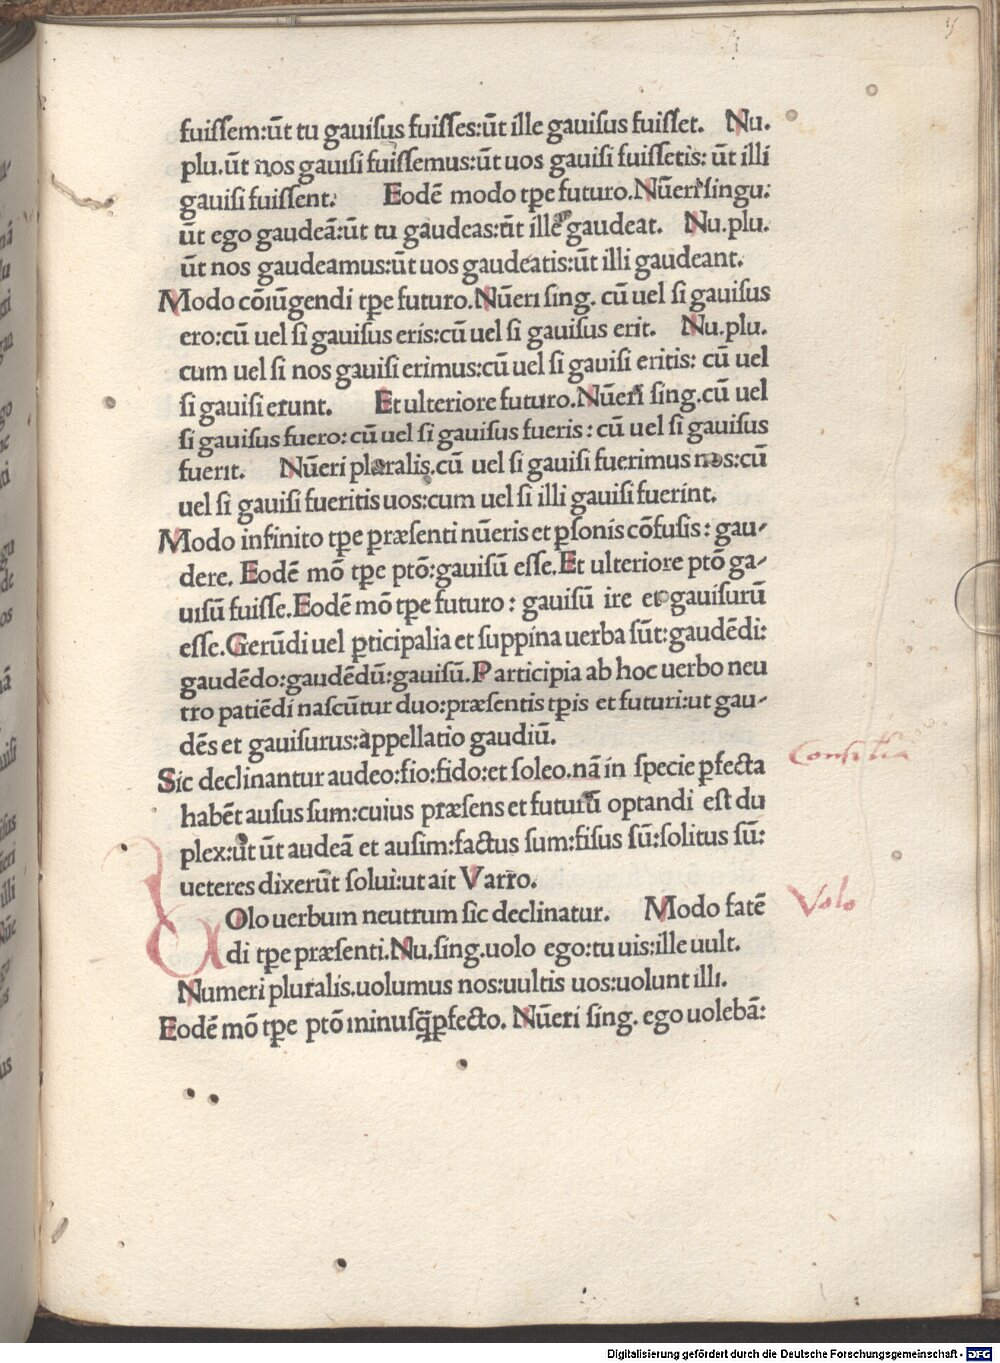 fuissem:ūt tu gauisus fuisses:ūt ille gauisus fuisset. Nu.
plu.ūt nos gauisi fuissemus:ūt uos gauisi fuissetis: ūt illi
gauisi fuissent: Eodē modo tpe futuro.Nūeri singu:
ūt ego gaudeā:ūt tu gaudeas:ūt ille gaudeat. Nu.plu.
ūt nos gaudeamus:ūt uos gaudeatis:ūt illi gaudeant.
Modo cōiūgendi tpe futuro.Nūeri sing. cū uel si gauisus
ero:cū uel si gauisus eris:cū uel si gauisus erit. Nu.plu.
cum uel si nos gauisi erimus:cū uel si gauisi eritis: cū uel
si gauisi erunt. Et ulteriore futuro.Nūeri sing.cū uel
si gauisus fuero: cū uel si gauisus fueris : cū uel si gauisus
fuerit. Nūeri pluralis.cū uel si gauisi fuerimus nos:cū
uel si gauisi fueritis uos:cum uel si illi gauisi fuerint.
Modo infinito tpe præsenti nūeris et psonis cōfusis : gau-
dere. Eodē mō tpe ptō:gauisū esse.Et ulteriore ptō ga-
uisū fuisse.Eodē mō tpe futuro : gauisū ire et gauisurū
esse.Gerūdi uel pticipalia et suppina uerba sūt:gaudēdi:
gaudēdo:gaudēdū:gauisū.Participia ab hoc uerbo neu
tro patiēdi nascūtur duo:præsentis tpis et futuri:ut gau-
dēs et gauisurus:appellatio gaudiū.
Sic declinantur audeo:fio:fido:et soleo.nā in specie pfecta
habēt ausus sum:cuius præsens et futurū optandi est du
plex:ut ūt audeā et ausim:factus sum:fisus sū:solitus sū:
ueteres dixerūt solui:ut ait Varro.
UOlo uerbum neutrum sic declinatur. Modo fatē
di tpe præsenti.Nu.sing.uolo ego:tu uis:ille uult.
Numeri pluralis.uolumus nos:uultis uos:uolunt illi.
Eodē mō tpe ptō minusq̄pfecto. Nūeri sing. ego uolebā:
Volo
Digitalisierung gefördert durch die Deutsche Forschungsgemeinschaft - DFG